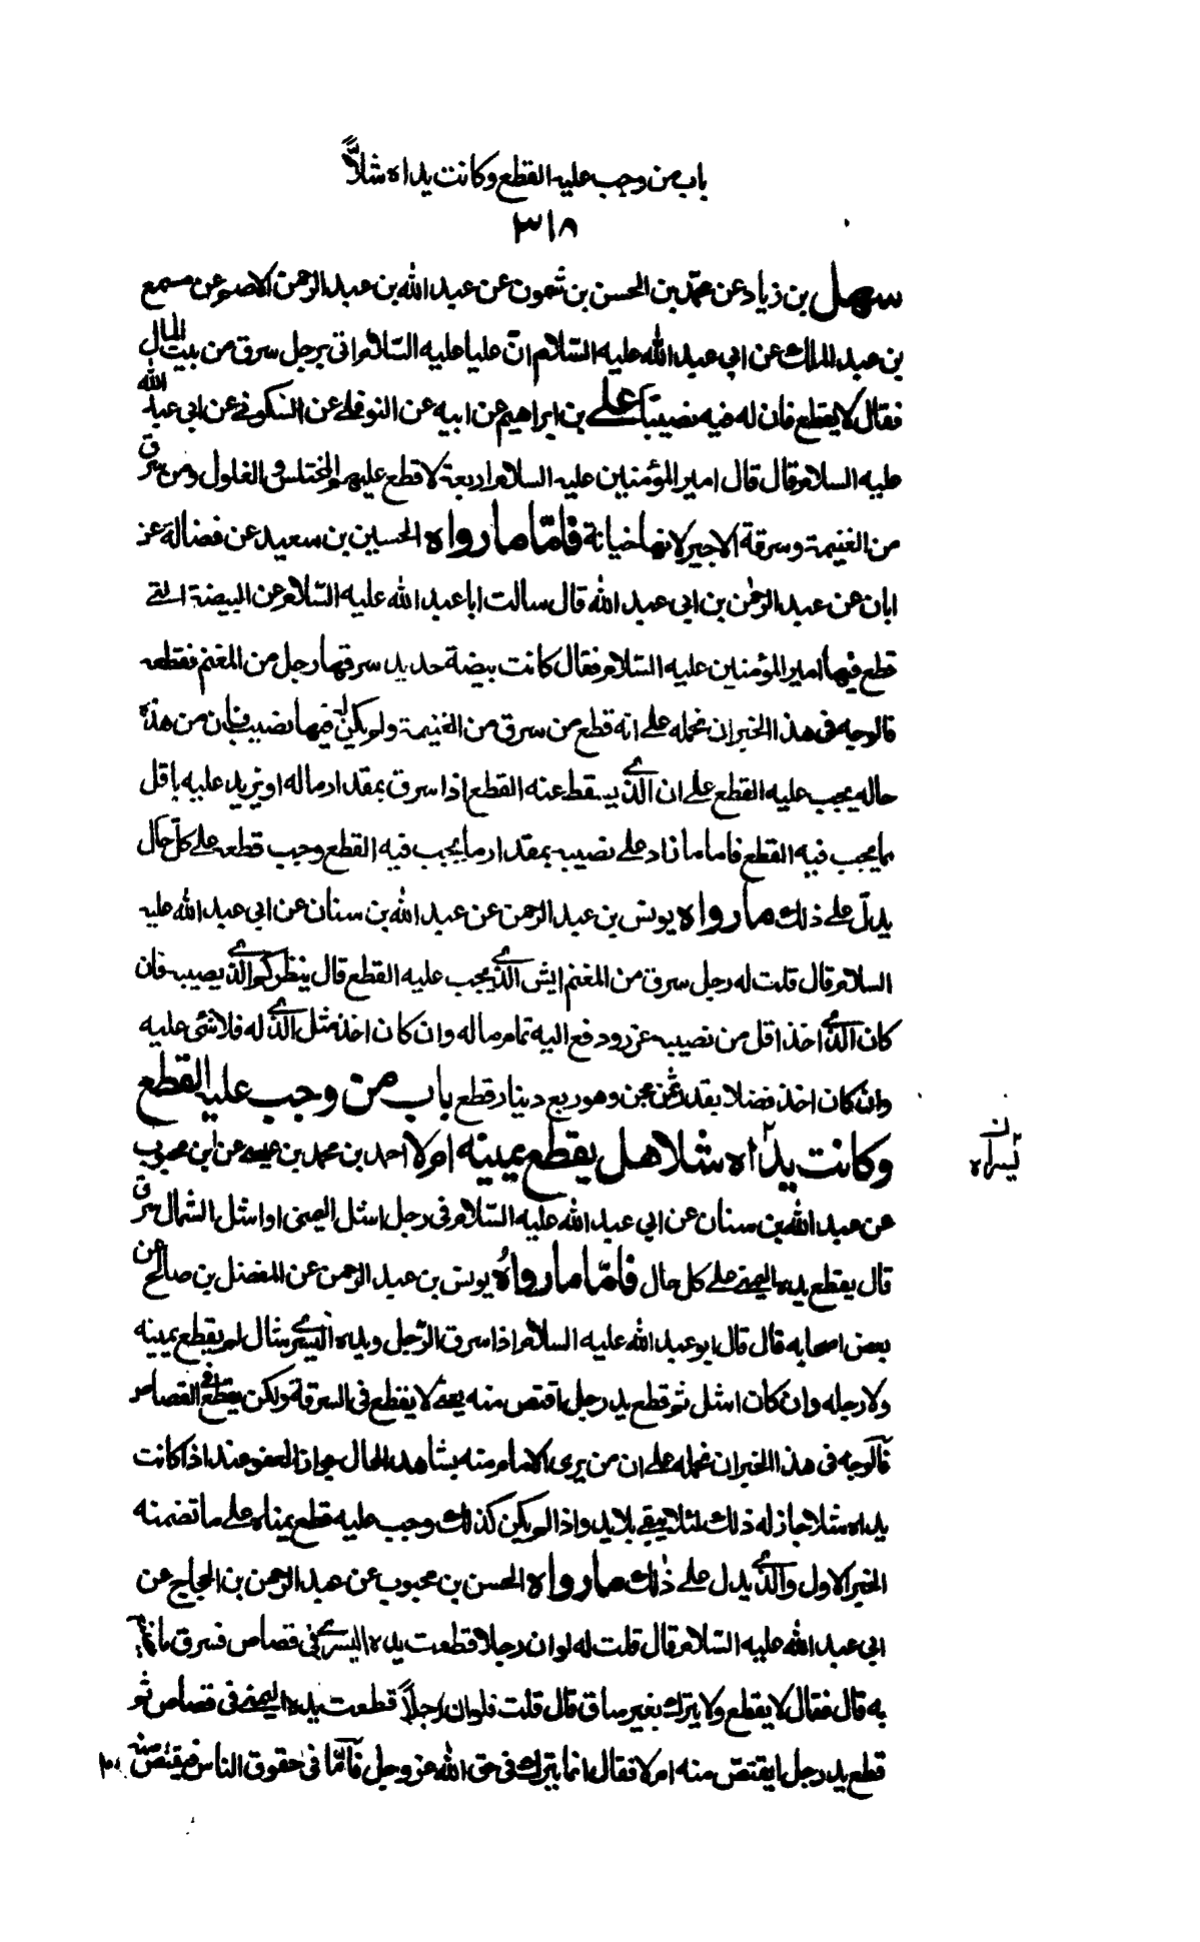 باب من وجب عليه القطع وكانت يداه شلاًّ
٣١٨
سهل بن زياد عن محمّد بن الحسن بن شمون عن عبد الله بن عبد الرحمن الاصم عن مسمع
بن عبد الملك عن ابي عبد الله عليه السّلام انّ عليا عليه السّلام اتى برجل سرق من بيت المال
فقال لا يقطع فان له فيه نصيبا علي بن ابراهيم عن ابيه عن النوفلي عن السكوني عن ابي عبد الله
عليه السلام قال قال امير المؤمنين عليه السلام اربعة لا قطع عليهم المختلس والغلول ومن سرق
من الغنيمة وسرقة الاجير لانها خيانة فامّا ما رواه الحسين بن سعيد عن فضالة عن
ابان عن عبد الرحمن بن ابي عبد الله قال سالت ابا عبد الله عليه السّلام عن البيضة التي
قطع فيها امير المؤمنين عليه السّلام فقال كانت بيضة حديد سرقها رجل من المغنم فقطعه
فالوجه في هذا الخبر ان نحمله على انه قطع من سرق من الغنيمة ولم يكن له فيها نصيب فان من هذه
حاله يجب عليه القطع على ان الذي يسقط عنه القطع اذا سرق بمقدار ماله او يزيد عليه باقل
مما يجب فيه القطع فاما ما زاد على نصيبه بمقدار ما يجب فيه القطع وجب قطعه على كلّ حال
يدلّ على ذلك ما رواه يونس بن عبد الرحمن عن عبد الله بن سنان عن ابي عبد الله عليه
السلام قال قلت له رجل سرق من المغنم ايش الذي يجب عليه القطع قال ينظر كم الذي يصيبه فان
كان الذي اخذ اقل من نصيبه عزر ودفع اليه تمام ماله وان كان اخذ مثل الذي له فلا شئ عليه
وان كان اخذ فضلا بقدر ثمن مجن وهو ربع دينار قطع باب من وجب عليه القطع
وكانت يداه شلا هل يقطع يمينه ام لا احمد بن محمد بن عيسى عن ابن محبوب
ن
يسراه
عن عبد الله بن سنان عن ابي عبد الله عليه السّلام في رجل اشل اليمنى او اشل الشمال سرق
قال يقطع يده اليمنى على كل حال فامّا ما رواه يونس بن عبد الرحمن عن المفضل بن صالح عن
بعض اصحابه قال قال ابو عبد الله عليه السلام اذا سرق الرّجل ويده اليسرى شلل لم يقطع يمينه
ولا رجله وان كان اشل ثم قطع يد رجل اقتص منه يعنى لا يقطع في السرقة ولكن يقطع في القصاص
فالوجه في هذا الخبر ان نحمله على ان من يرى الامام منه بشاهد الحال جواز العفو عنه اذا كانت
يداه شلا جاز له ذلك لئلا يبقى بلا يد واذا لم يكن كذلك وجب عليه قطع يمناه على ما تضمنه
الخبر الاول والذي يدل على ذلك ما رواه الحسن بن محبوب عن عبد الرحمن بن الحجاج عن
ابي عبد الله عليه السّلام قال قلت له لو ان رجلا قطعت يده اليسرى في قصاص فسرق ما
به قال فقال لا يقطع ولا يترك بغير ساق قال قلت فلو ان رجلاً قطعت يده اليمنى في قصاص ثم
قطع يد رجل ايقتصّ منه ام لا فقال انما يترك في حق الله عز وجل فامّا في حقوق الناس فيقتص منه